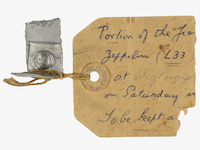 Portion of the Fra
Zeppelin (L33
at
on Saturday n
To be kept a